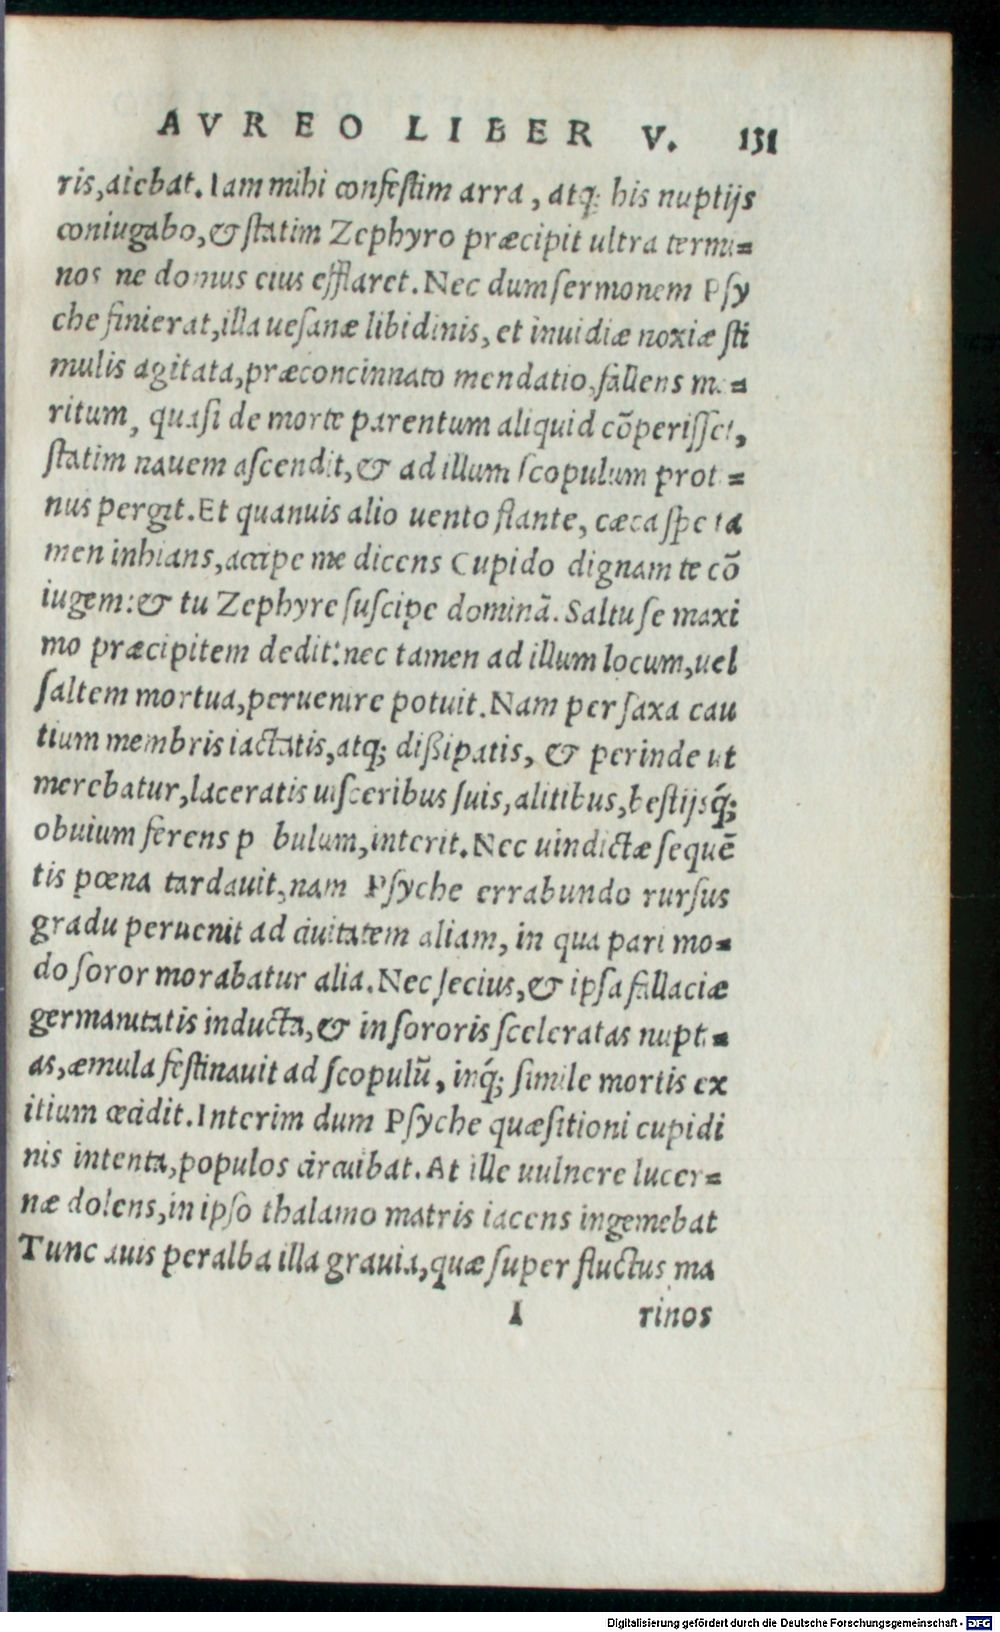 AVREO LIBER V. 131
ris,aiebat. Iam mihi confestim arra, atq; his nuptijs
coniugabo,& statim Zephyro præcipit ultra termi=
nos ne domus eius efflaret. Nec dum sermonem Psy
che finierat,illa uesanæ libidinis, et inuidiæ noxiæ sti
mulis agitata,præconcinnato mendatio,fallens ma=
ritum, quasi de morte parentum aliquid cōperisset,
statim nauem ascendit,& ad illum scopulum proti=
nus pergit. Et quanuis alio uento flante, cæca spe ta
men inhians,accipe me dicens Cupido dignam te cō
iugem:& tu Zephyre suscipe dominā. Saltu se maxi
mo præcipitem dedit:nec tamen ad illum locum,uel
saltem mortua,peruenire potuit. Nam per saxa cau
tium membris iactatis,atq; dißipatis, & perinde ut
merebatur,laceratis uisceribus suis,alitibus,bestijsq́;
obuium ferens p bulum,interit. Nec uindictæ sequē
tis pœna tardauit,nam Psyche errabundo rursus
gradu peruenit ad ciuitatem aliam, in qua pari mo=
do soror morabatur alia. Nec secius,& ipsa fallaciæ
germanitatis inducta,& in sororis sceleratas nupti=
as,æmula festinauit ad scopulū, inq́; simile mortis ex
itium cecidit. Interim dum Psyche quæsitioni cupidi
nis intenta,populos circuibat. At ille uulnere lucer=
næ dolens,in ipso thalamo matris iacens ingemebat
Tunc auis peralba illa grauia,quæ super fluctus ma
I rinos
Digitalisierung gefördert durch die Deutsche Forschungsgemeinschaft - DFG